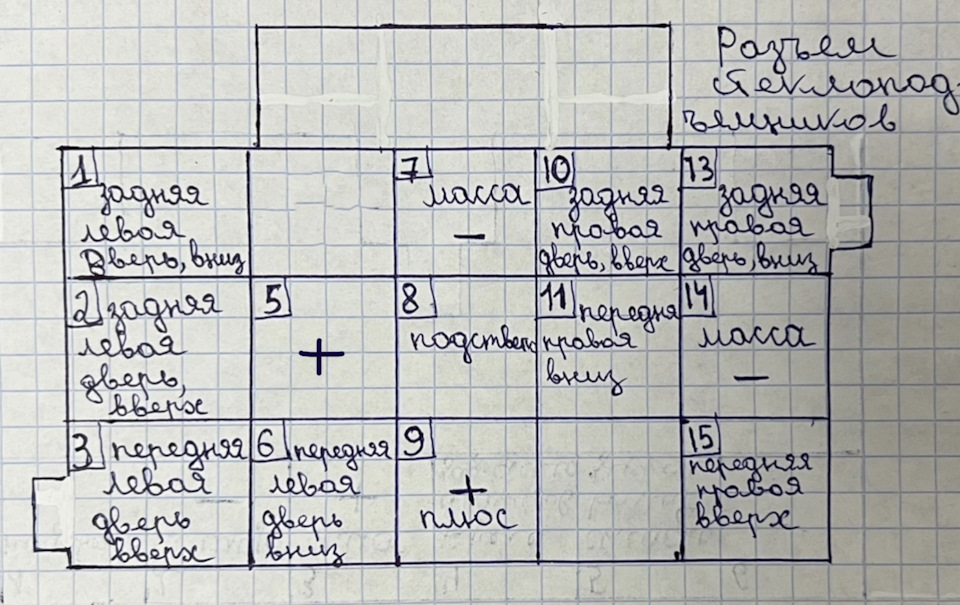 Разъем
стеклопод-
ъемников
1
задняя
левая
дверь, вниз
7
масса
—
10
задняя
правая
дверь, вверх
13
задняя
правая
дверь, вниз
2 задняя
левая
дверь,
вверх
5
+
8
подствет
11 передня
правая
вниз
14
масса
—
3 передняя
левая
дверь
вверх
6 передняя
левая
дверь
вниз
9
+
плюс
15
передняя
правая
вверх